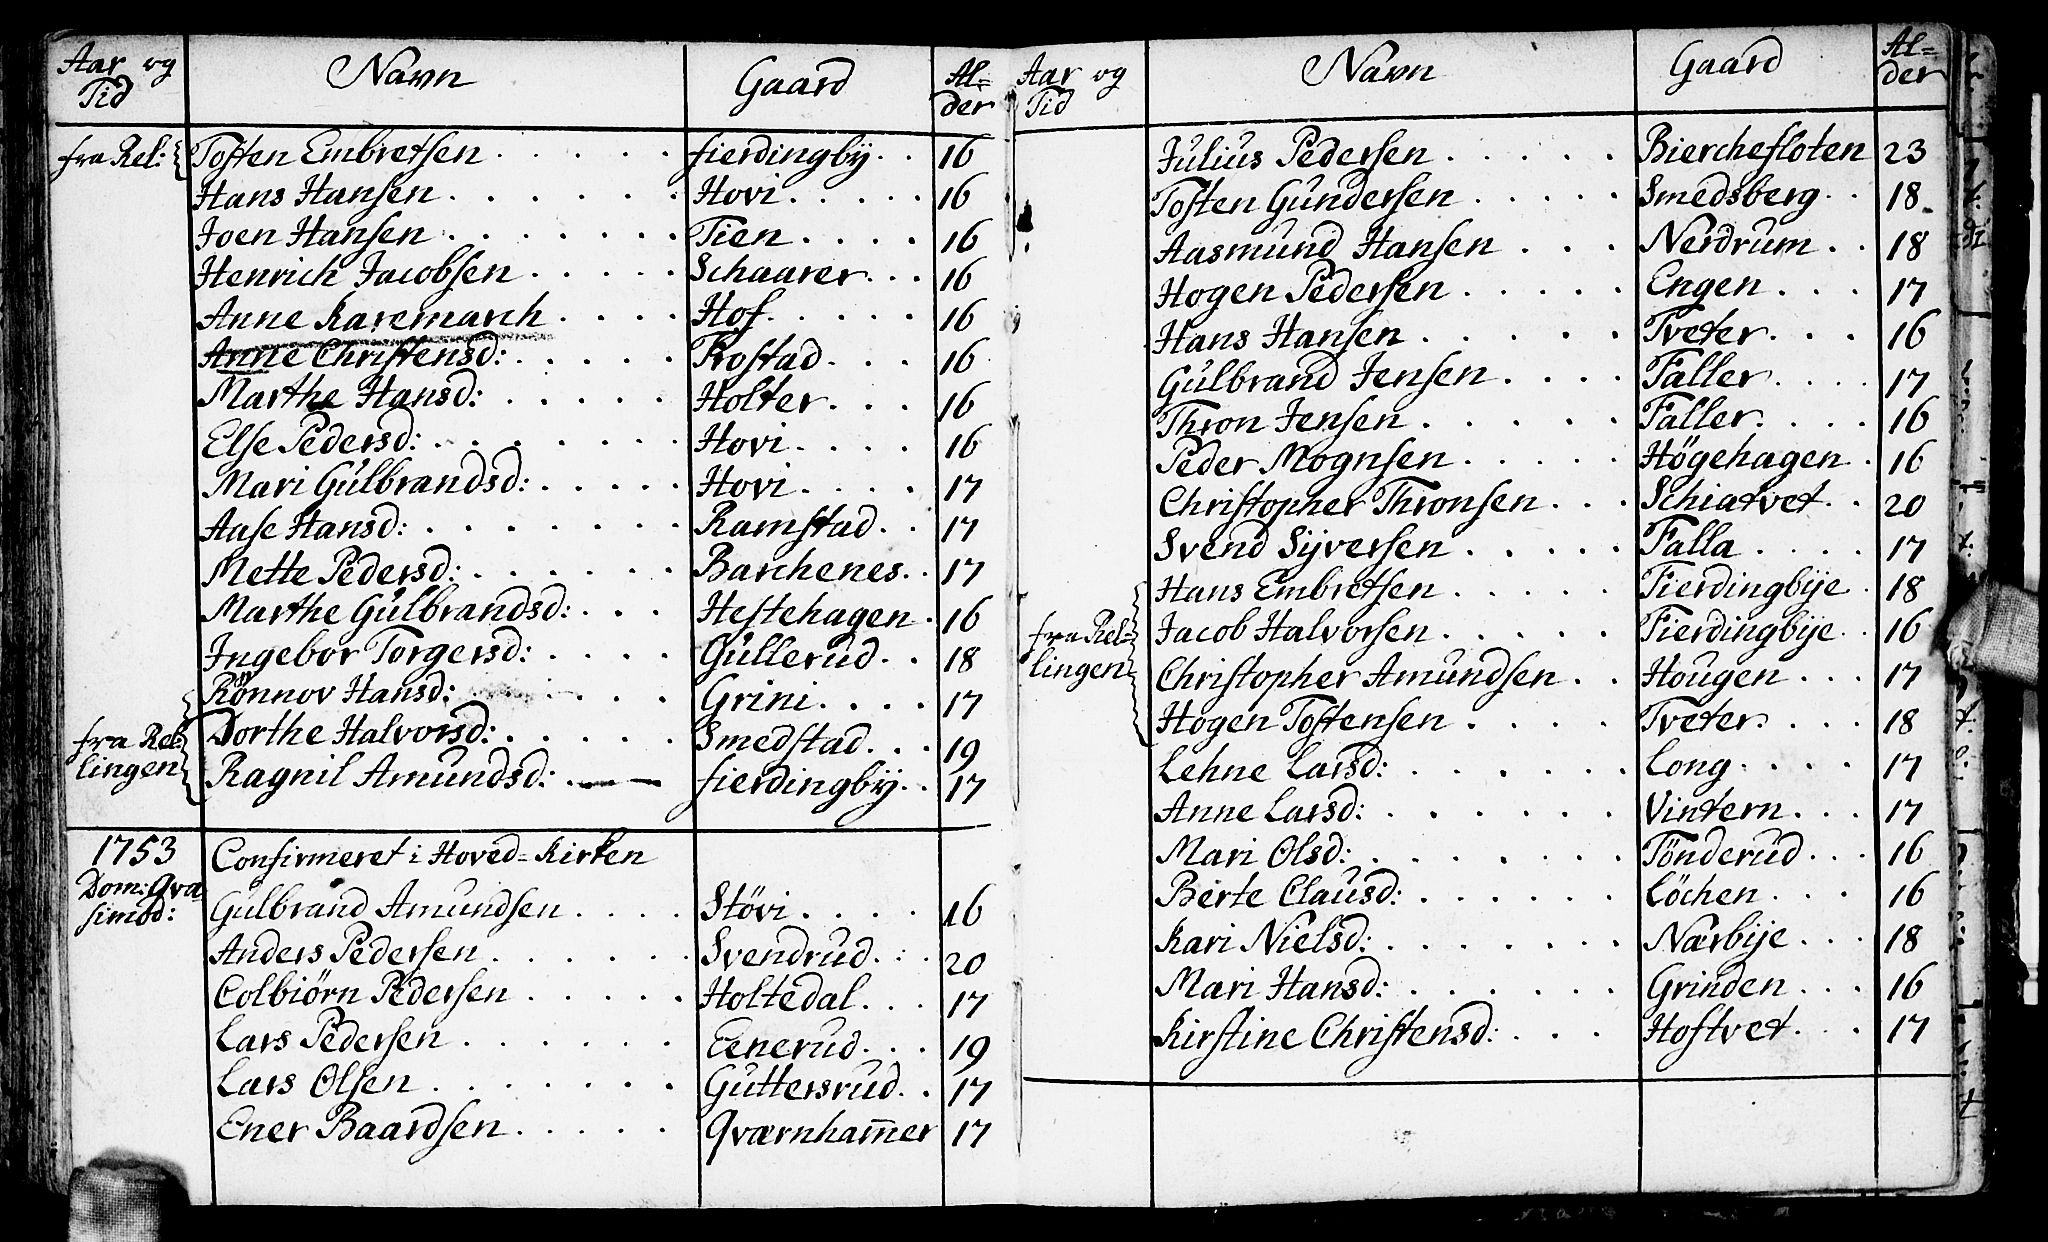 Aar og Tid Navn Gaard Al=
der
fra Rel: Tosten Embretsen . . . . . fierdingbÿ . . 16
Hans Hansen . . . . . . Hovi . . . . . 16
Joen Hansen . . . . . . . Tien . . . . 16
Henrich Jacobsen . . . . . Schaarer . . . 16
Anne Karemarch . . . . Hof . . . . . 16
Anne Christensd: . . . . . Rostad . . . 16
Marthe Hansd: . . . . . Holter . . . 16
Else Pedersd: . . . . . . . Hovi . . . . 16
Mari Gulbrandsd: . . . . . Hovi . . . . 17
Aase Hansd: . . . . . . . Ramstad . . 17
Mette Pedersd: . . . . . . Barchenes . . 17
Marthe Gulbrandsd: . . . Hestehagen . 16
Ingebor Torgersd: . . . . Gullerud . . 18
Rönnov Hansd: . . . . Grini . . . . 17
fra Rel= Dorthe Halvorsd: . . . . . Smedstad . . . 19
lingen Ragnil Amundsd: . — — fierdingbÿ . . 17
1753 Confirmeret i Hoved=Kirken
Dom: Qva
simod: Gulbrand Amundsen . . . . Stövi . . . . 16
Anders Pedersen . . . . . . Svendrud . . . 20
Colbiörn Pedersen . . . . . Holtedal . . . 17
Lars Pedersen . . . . . . Eenerud . . . 19
Lars Olsen . . . . . . . Guttersrud . . 17
Ener Baardsen . . . . . Qværnham̅er 17
Aar og Tid Navn Gaard Al=
der
Julius Pedersen . . . . . Biercheflöten 23
Tosten Gundersen . . . . . Smedsberg . . 18
Aasmund Hansen . . . Nerdrum . . 18
Hogen Pedersen . . . . . Engen . . . 17
Hans Hansen . . . . . Tveter . . . 16
Gulbrand Jensen . . . . Faller . . . . 17
Thron Jensen . . . . . Faller . . . . 16
Peder Mognsen . . . . . Högehagen . 16
Christopher Thronsen . . . Schiatvet . . 20
Svend Sÿversen . . . . . Falla . . . . 17
Hans Embretsen . . . . . Fierdingbÿe . 18
fra Rel= Jacob Halvorsen . . . . . Fierdingbÿe . . 16
lingen Christopher Amundsen . . Hougen . . . 17
Hogen Tostensen . . . . Tveter . . . 18
Lehne Larsd: . . . . . . Long . . . . 17
Anne Larsd: . . . . . . Vintern . . . 17
Mari Olsd: . . . . . . . Tönderud . . . 16
Berte Clausd: . . . . . . Löchen . . . 16
Kari Nielsd: . . . . . . . Nærbÿe . . . 18
Mari Hansd: . . . . . . Grinden . . . 16
Kirstine Christensd: . . . Hoftvet . . . 17